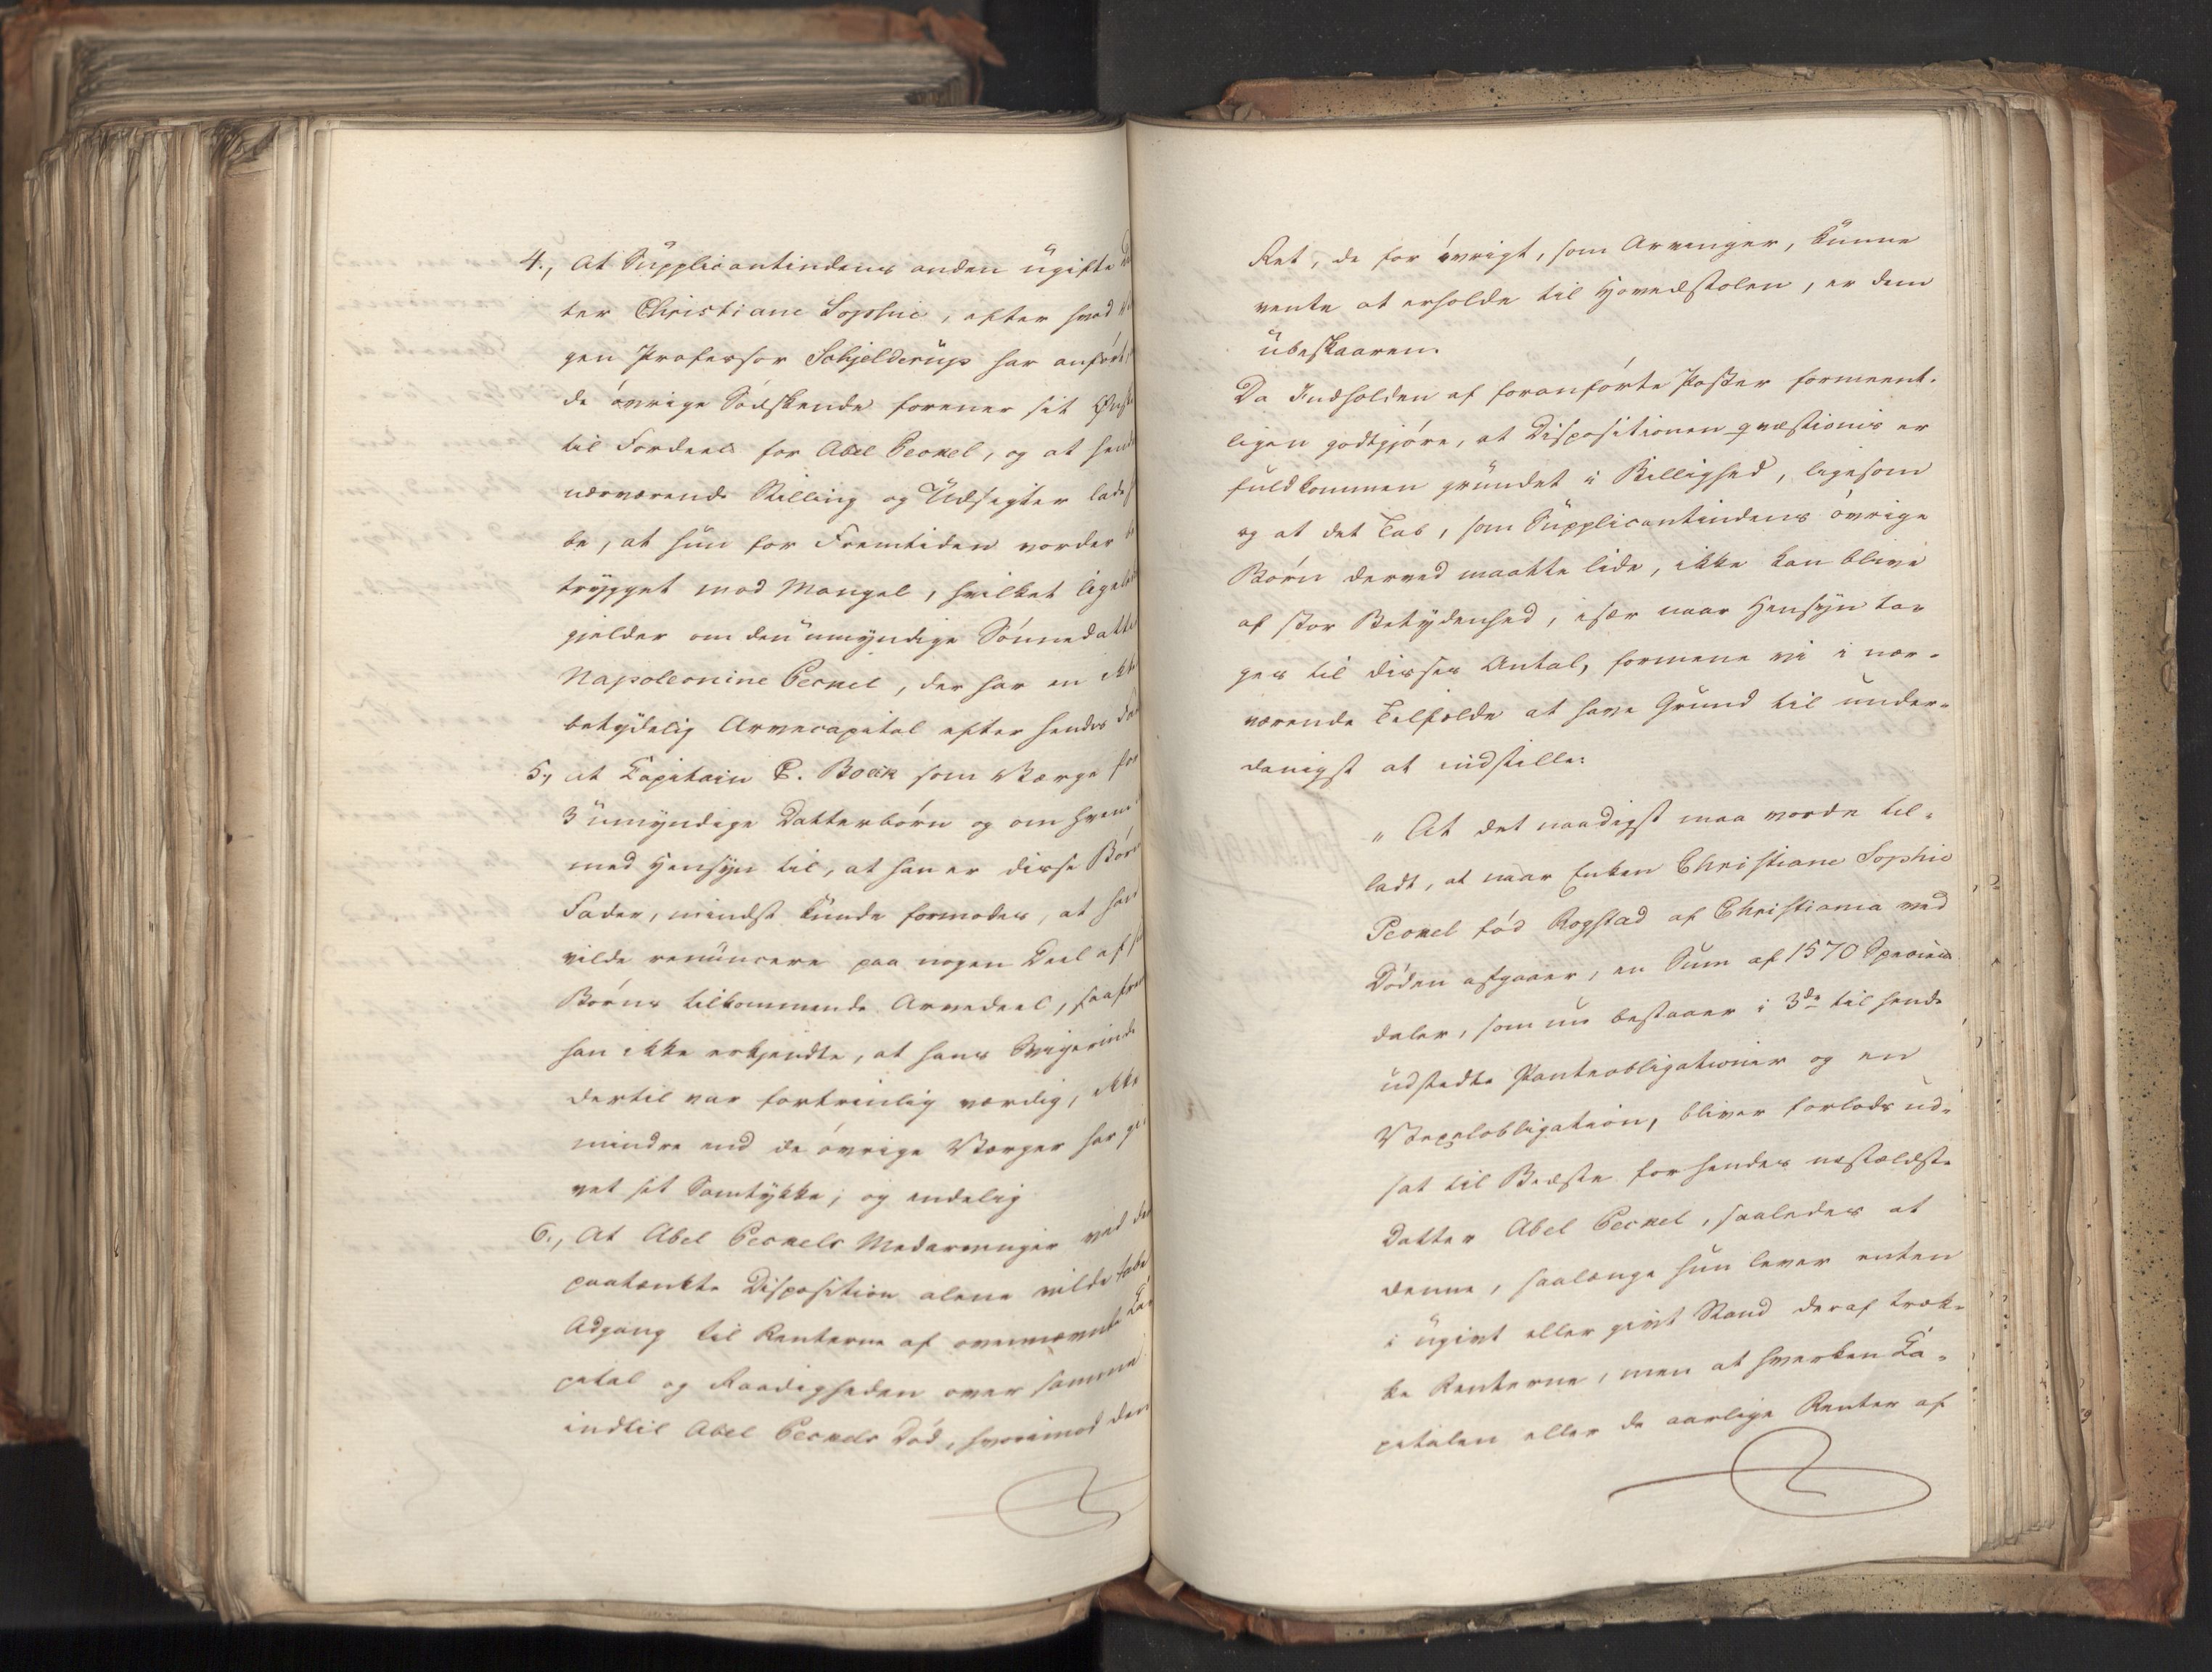 4., At Supplicantindens anden ugifte
ter Christiane Sophie, efter hvad
gen Professor Schjelderup har anført,
de øvrige Sødskende forener sit Ønske
til Fordeel for Abel Peckel, og at hendes
nærværende Stilling og Udsigter lade
be, at hun for Fremtiden vorder
trygget mod Mangel, hvilket ligeledes
gjelder om den umyndige Sønnedatter
Napoleonine Peckel, der har en ikke
betydelig Arvecapital efter hendes
5., at Capitain C. Boeck som Værge for
3 umyndige Datterbørn og om hvem
med Hensyn til, at han er disse Børns
Fader, mindst kunde formodes, at han
vilde renuncere paa nogen Deel af
Børns tilkommende Arvedeel, saafremt
han ikke erkjendte, at hans Svigerinde
dertil var fortrinlig værdig, ikke
mindre end de øvrige Værger har gi-
vet sit Samtykke; og endelig
6., At Abel Peckels Medarvinger ved den
paatænkte Disposition alene vilde tabe
Adgang til Renterne af ovennævnte Ca-
pital og Raadigheden over samme
indtil Abel Peckels Død, hvorimod den
Ret, de for øvrigt, som Arvinger, kunne
vente at erholde til Hovedstolen, er dem
ubeskaaren.
Da Indholden af foranførte Poster formeent-
ligen godtgjøre, at Dispositionen qvæstionis er
fuldkommen grundet i Billighed, ligesom
og at det Tab, som Supplicantindens øvrige
Børn derved maatte lide, ikke kan blive
af stor Betydenhed, især naar Hensyn ta-
ges til disses Antal, formene vi i nær-
værende Tilfælde at have Grund til under-
danigst at indstille:
"At det naadigst maa vorde til-
ladt, at naar Enken Christiane Sophie
Peckel fød Rogstad af Christiania ved
Døden afgaaer, en Sum af 1570 Specie-
daler, som nu bestaaer i 3de til hende
udstedte Panteobligationer og en
Vexelobligation, bliver forlods ud-
sat til Bedste for hendes næstældste
Datter Abel Peckel, saaledes at
denne, saalænge hun lever enten
i ugivt eller givt Stand deraf træk-
ke Renterne, men at hverken Ca-
pitalen eller de aarlige Renter af